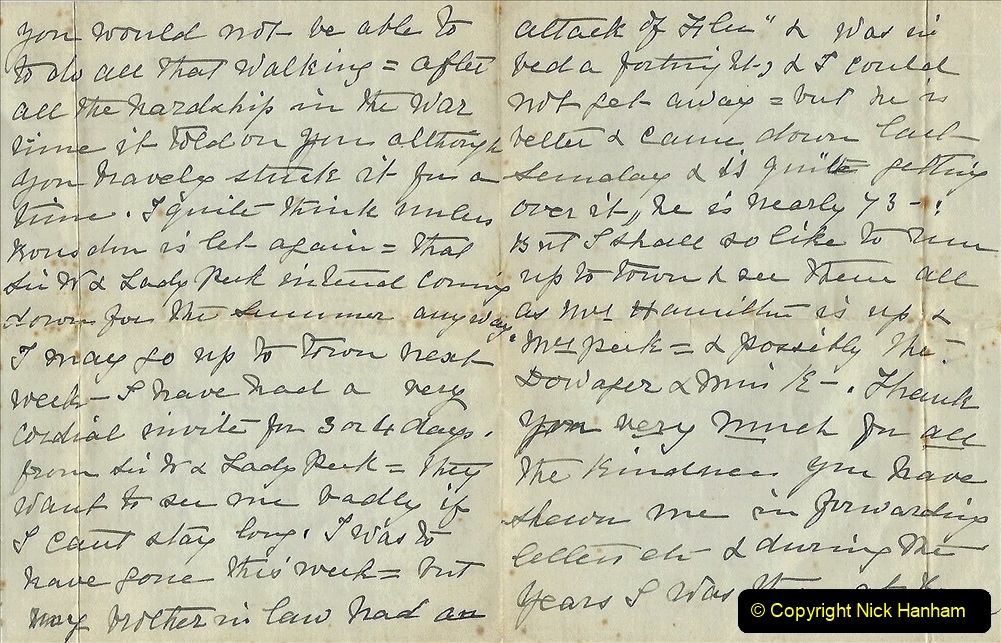 you would not be able to
to do all that walking = after
all the hardship in the War
time it told on you although
you bravely stuck it for a
time. I quite think unless
Rousdon is let again = that
Sir W & Lady Peek intend coming
down for the Summer anyway.
I may go up to town next
week - I have had a very
cordial invite for 3 or 4 days.
from Sir W & Lady Peek = they
want to see me badly if
I cant stay long. I was to
have gone this week = but
my brother in law had an
attack of Flu" & was in
bed a fortnight, & I could
not get away = but he is
better & came down last
Sunday & is quite getting
over it, he is nearly 73 - !
But I shall so like to run
up to town & see them all
as Mrs Hamilton is up &
Mrs Peek = & possibly the
Dowager & Miss K - . Thank
you very much for all
the kindness you have
shewn me in forwarding
letters etc & during the
years I was
© Copyright Nick Hanham